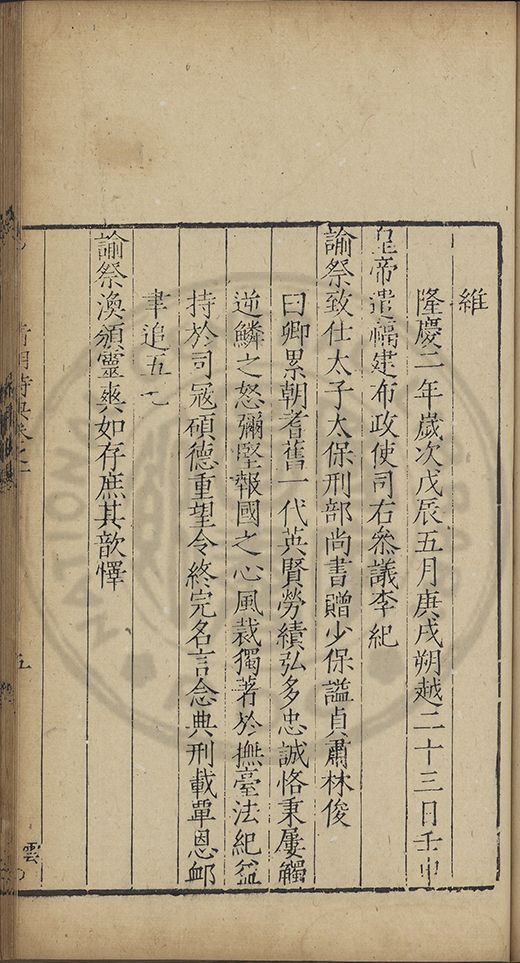 維
隆慶二年歲次戊辰五月庚戌朔越二十三日壬申
皇帝遣福建布政使司右叅議李紀
諭祭致仕太子太保刑部尚書贈少保謚貞肅林俊
曰卿累朝耆舊一代英賢勞績弘多忠誠恪秉屢觸
逆鱗之怒彌堅報國之心風裁獨著於撫臺法紀益
持於司寇碩德重望令終完名言念典刑載覃恩卹
聿追五七
諭祭渙頒靈爽如存庶其歆懌
五
雲